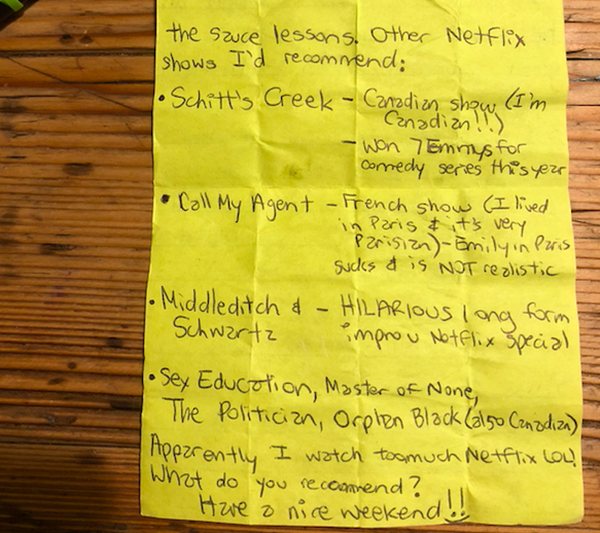 the sauce lessons. Other Netflix
shows I'd recommend:
• Schitt's Creek - Canadian show (I'm
Canadian!!)
- won 7 Emmys for
comedy series this year
• Call My Agent - French show (I lived
in Paris & it's very
Parisian) - Emily in Paris
sucks & is NOT realistic
• Middleditch & - HILARIOUS long form
Schwartz improv Netflix special
• Sex Education, Master of None,
The Politician, Orphan Black (also Canadian)
Apparently I watch too much Netflix LOL!
What do you recommend?
Have a nice weekend!!